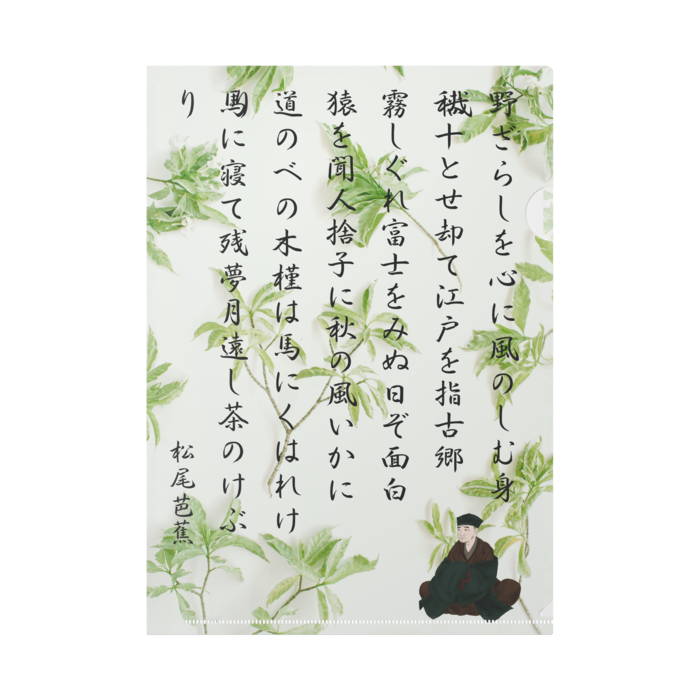 野ざらしを心に風のしむ身
哉
秋十とせ却て江戸を指古郷
霧しぐれ富士をみぬ日ぞ面白
猿を聞人捨子に秋の風いかに
道のべの木槿は馬にくはれけ
り
馬に寝て残夢月遠し茶のけぶ
り
松尾芭蕉